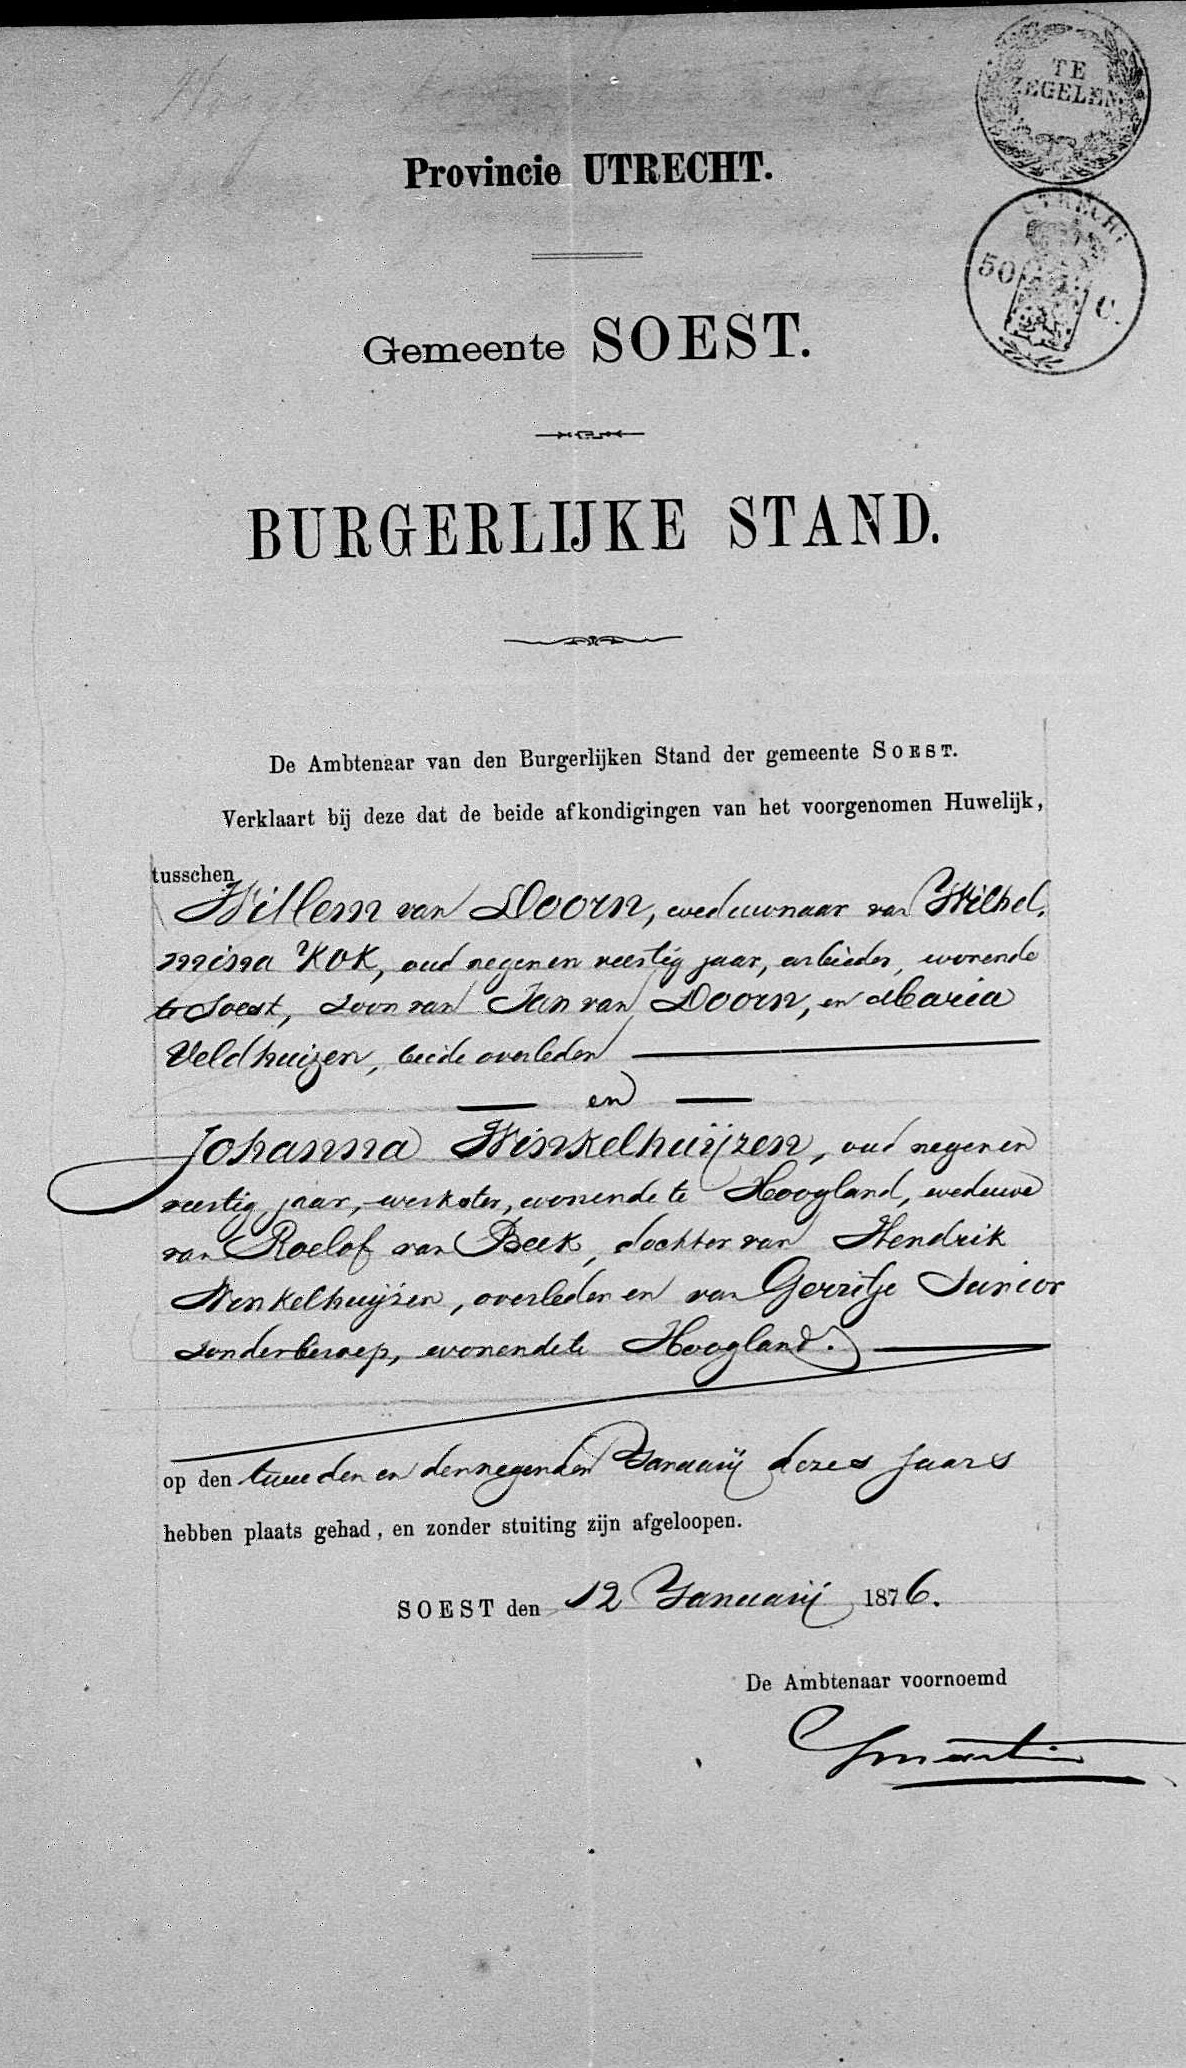 TE
ZEGELEN
UTRECHT
50 C.
Provincie UTRECHT.
Gemeente SOEST.
BURGERLIJKE STAND.
De Ambtenaar van den Burgerlijken Stand der gemeente SOEST.
Verklaart bij deze dat de beide afkondigingen van het voorgenomen Huwelijk,
tusschen
Willem van Doorn, weduwnaar van Wilhel-
mina Kok, oud negen en veertig jaar, arbeider, wonende
te Soest, zoon van Jan van Doorn, en Maria
Veldhuizen, beide overleden
en
Johanna Winkelhuijzen, oud negen en
veertig jaar, werkster, wonende te Hoogland, weduwe
van Roelof van Beek, dochter van Hendrik
Winkelhuijzen, overleden en van Gerritje Junior
zonder beroep, wonende te Hoogland.
op den tweeden en den negenden Januarij dezes jaars
hebben plaats gehad, en zonder stuiting zijn afgeloopen.
SOEST den 12 Januarij 1876.
De Ambtenaar voornoemd